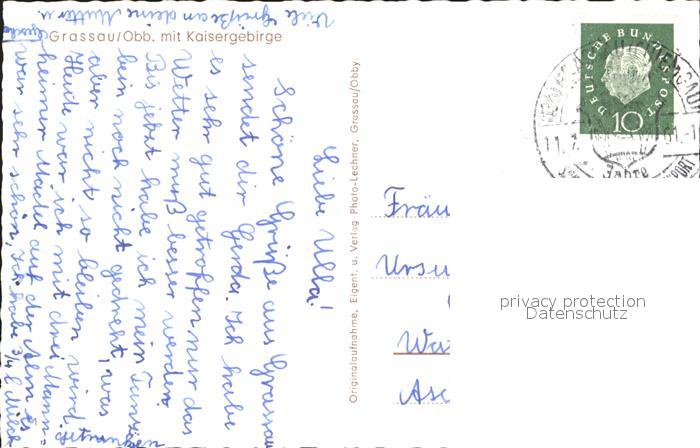 Grassau/Obb. mit Kaisergebirge
Liebe Ulla!
Schöne Grüße aus Grassau
sendet dir Gerda. Ich habe
es sehr gut getroffen nur das
Wetter muß besser werden
Bis jetzt habe ich mein Tanz
bein noch nicht gedreht, was
aber nicht so bleiben wird.
Heute war ich mit drei Mann-
heimer Mädel auf der Alm es
war sehr schön, Ich habe 3/4 l Milch
getrunken
Viele Grüße an deine Mutter u.
Originalaufnahme, Eigent. u. Verlag Photo-Lechner, Grassau/Obby.
DEUTSCHE BUNDESPOST
10
11.7.
61.-1
Jahre
Fräu
Ursu
Wa
Asc
privacy protection
Datenschutz